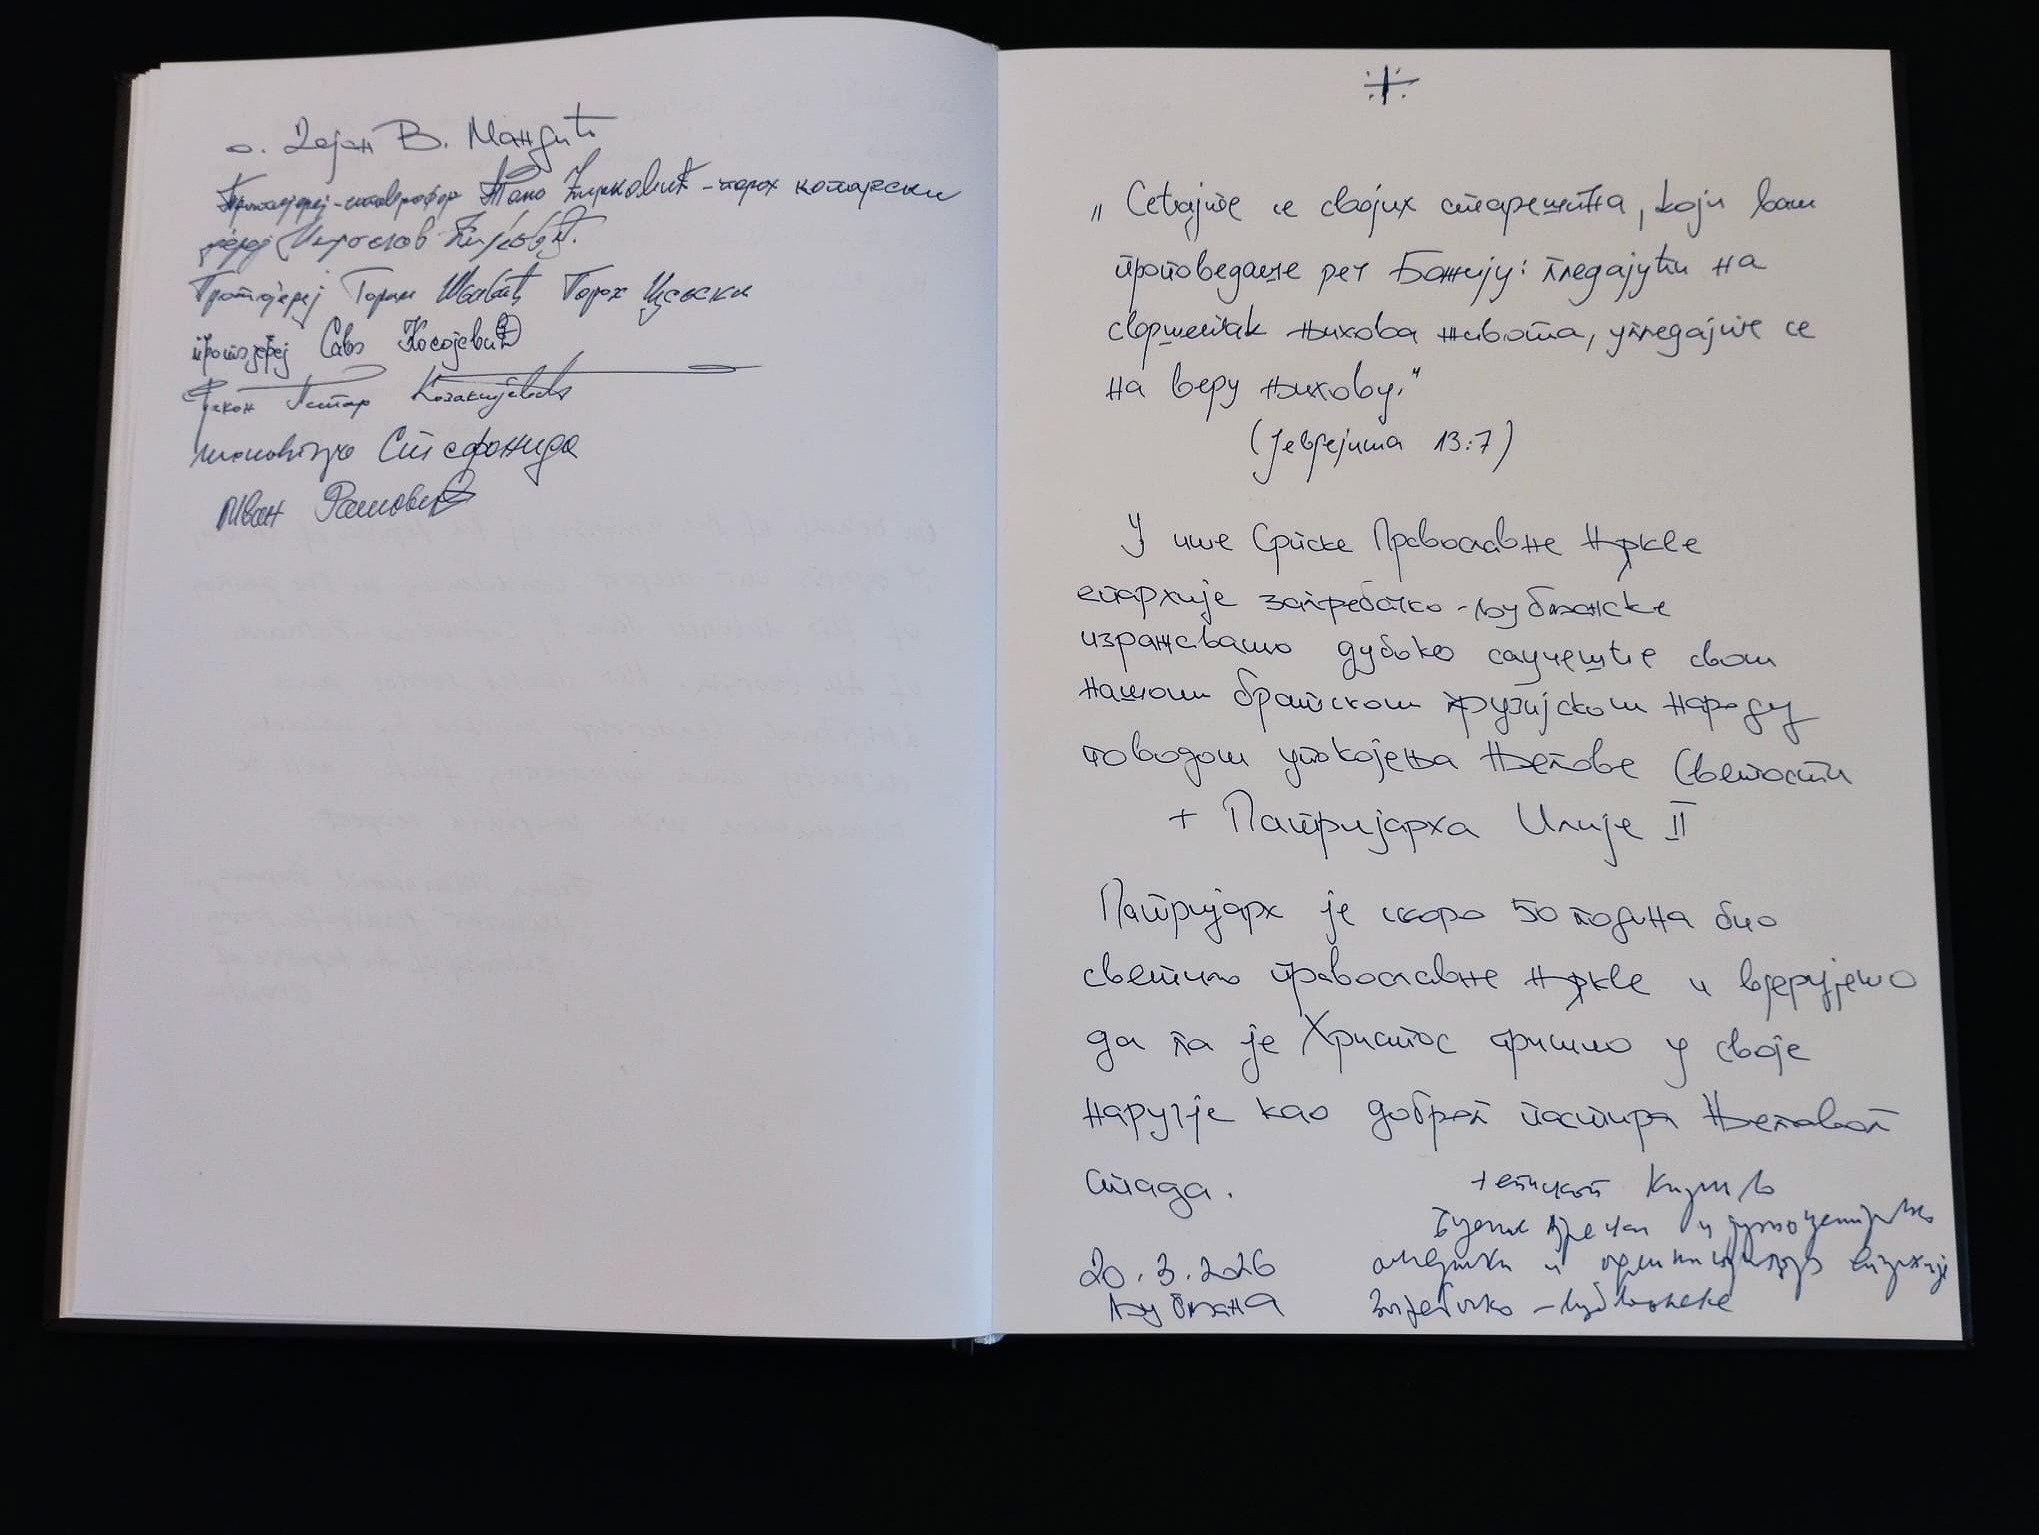 о. Дејан В. Мандић
Протојереј-ставрофор Жељко Ћирковић - парох копарски
јереј Мирослав
Протојереј Горан Шљивић Парох Цељски
протојереј Саво Косојевић
ђакон Петар
монахиња Стефанида
Иван Рашовић
„Сећајте се својих старешина, који вам
проповедаше реч Божију: гледајући на
свршетак њихова живота, угледајте се
на веру њихову."
(Јеврејима 13:7)
У име Српске Православне Цркве
епархије загребачко-љубљанске
изражавамо дубоко саучешће свом
нашом братском грузијском народу
поводом упокојења Његове Светости
+ Патријарха Илије II
Патријарх је скоро 50 година био
светило православне Цркве и вјерујемо
да га је Христос примио у своје
наручје као доброг пастира Његовог
стада.
+ епископ Кирило
буеносајрески и јужноцентрално
амерички и администратор епархије
загребачко-љубљанске
20.3.2026
Љубљана